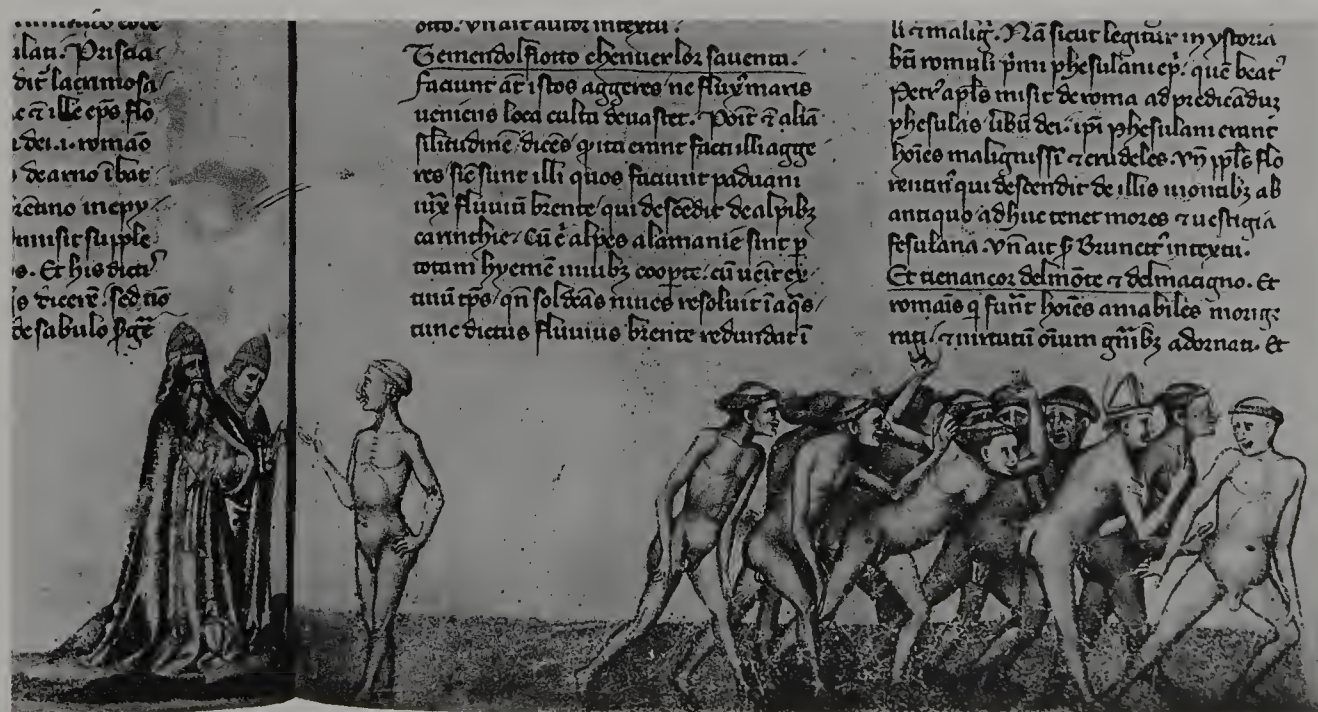 ulati. Priscia
dit lacrimosa
ille ep̄s flo
dei .i. romão
de arno ībat
in epy
misit supple
Et his dicti
dicerē. sed nō
de sabulo
otto. Vn̄ ait autor in textu.
Temendo l fiotto che nuer lor sauenta.
faciunt at̄ istos aggeres ne flux᷒ maris
ueniens loca culta deuastet. Poīt ⁊ aliā
silitudinē dicēs ꝙ ita erant facti illi agge
res sic̄ sunt illi quos faciunt paduani
iux̄ fluuiū brente qui descēdit de alpibꝫ
carinthie. Cū ē alpes alamanie sint ꝑ
totam hyemē niuibꝫ coopte. cū uēit
tp̄s qn̄ sol deās niues resoluit ī aq̄s
tunc dictus fluuius brente redundat ī
li ⁊ maliḡ. Nā sicut legitur in ystoria
bt̄i romuli p̄mi phesulani ep̄i. quē beat᷒
Petr᷒ apl̄s misit de roma ad predicāduꝫ
phesulas ūbū dei. ip̄i phesulani erant
hoīes malignissī ⁊ crudeles. Vn̄ pp̄ls flo
rentin᷒ qui descendit de illis montibꝫ ab
antiquo adhuc tenet mores ⁊ uestigia
fesulana. Vn̄ ait Brunett᷒ in textu.
Et tien ancor del mōte ⁊ del macigno. Et
romāis q fūnt hoīes amabiles morige
rati. ⁊ uirtutū oīum gn̄ibꝫ adornati. Et